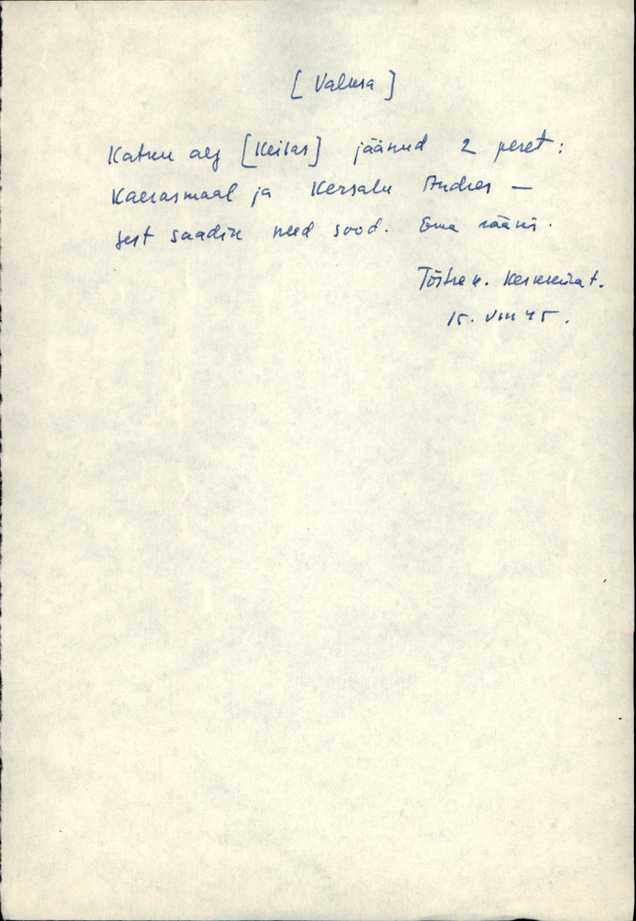 [Valusa]
Katku aeg [Keilas] jäänud 2 peret:
Kaerasmaal ja Kersalu Andres —
sest saadik need sood. Ema rääkis.
Tõstre k.
15. VIII 45.